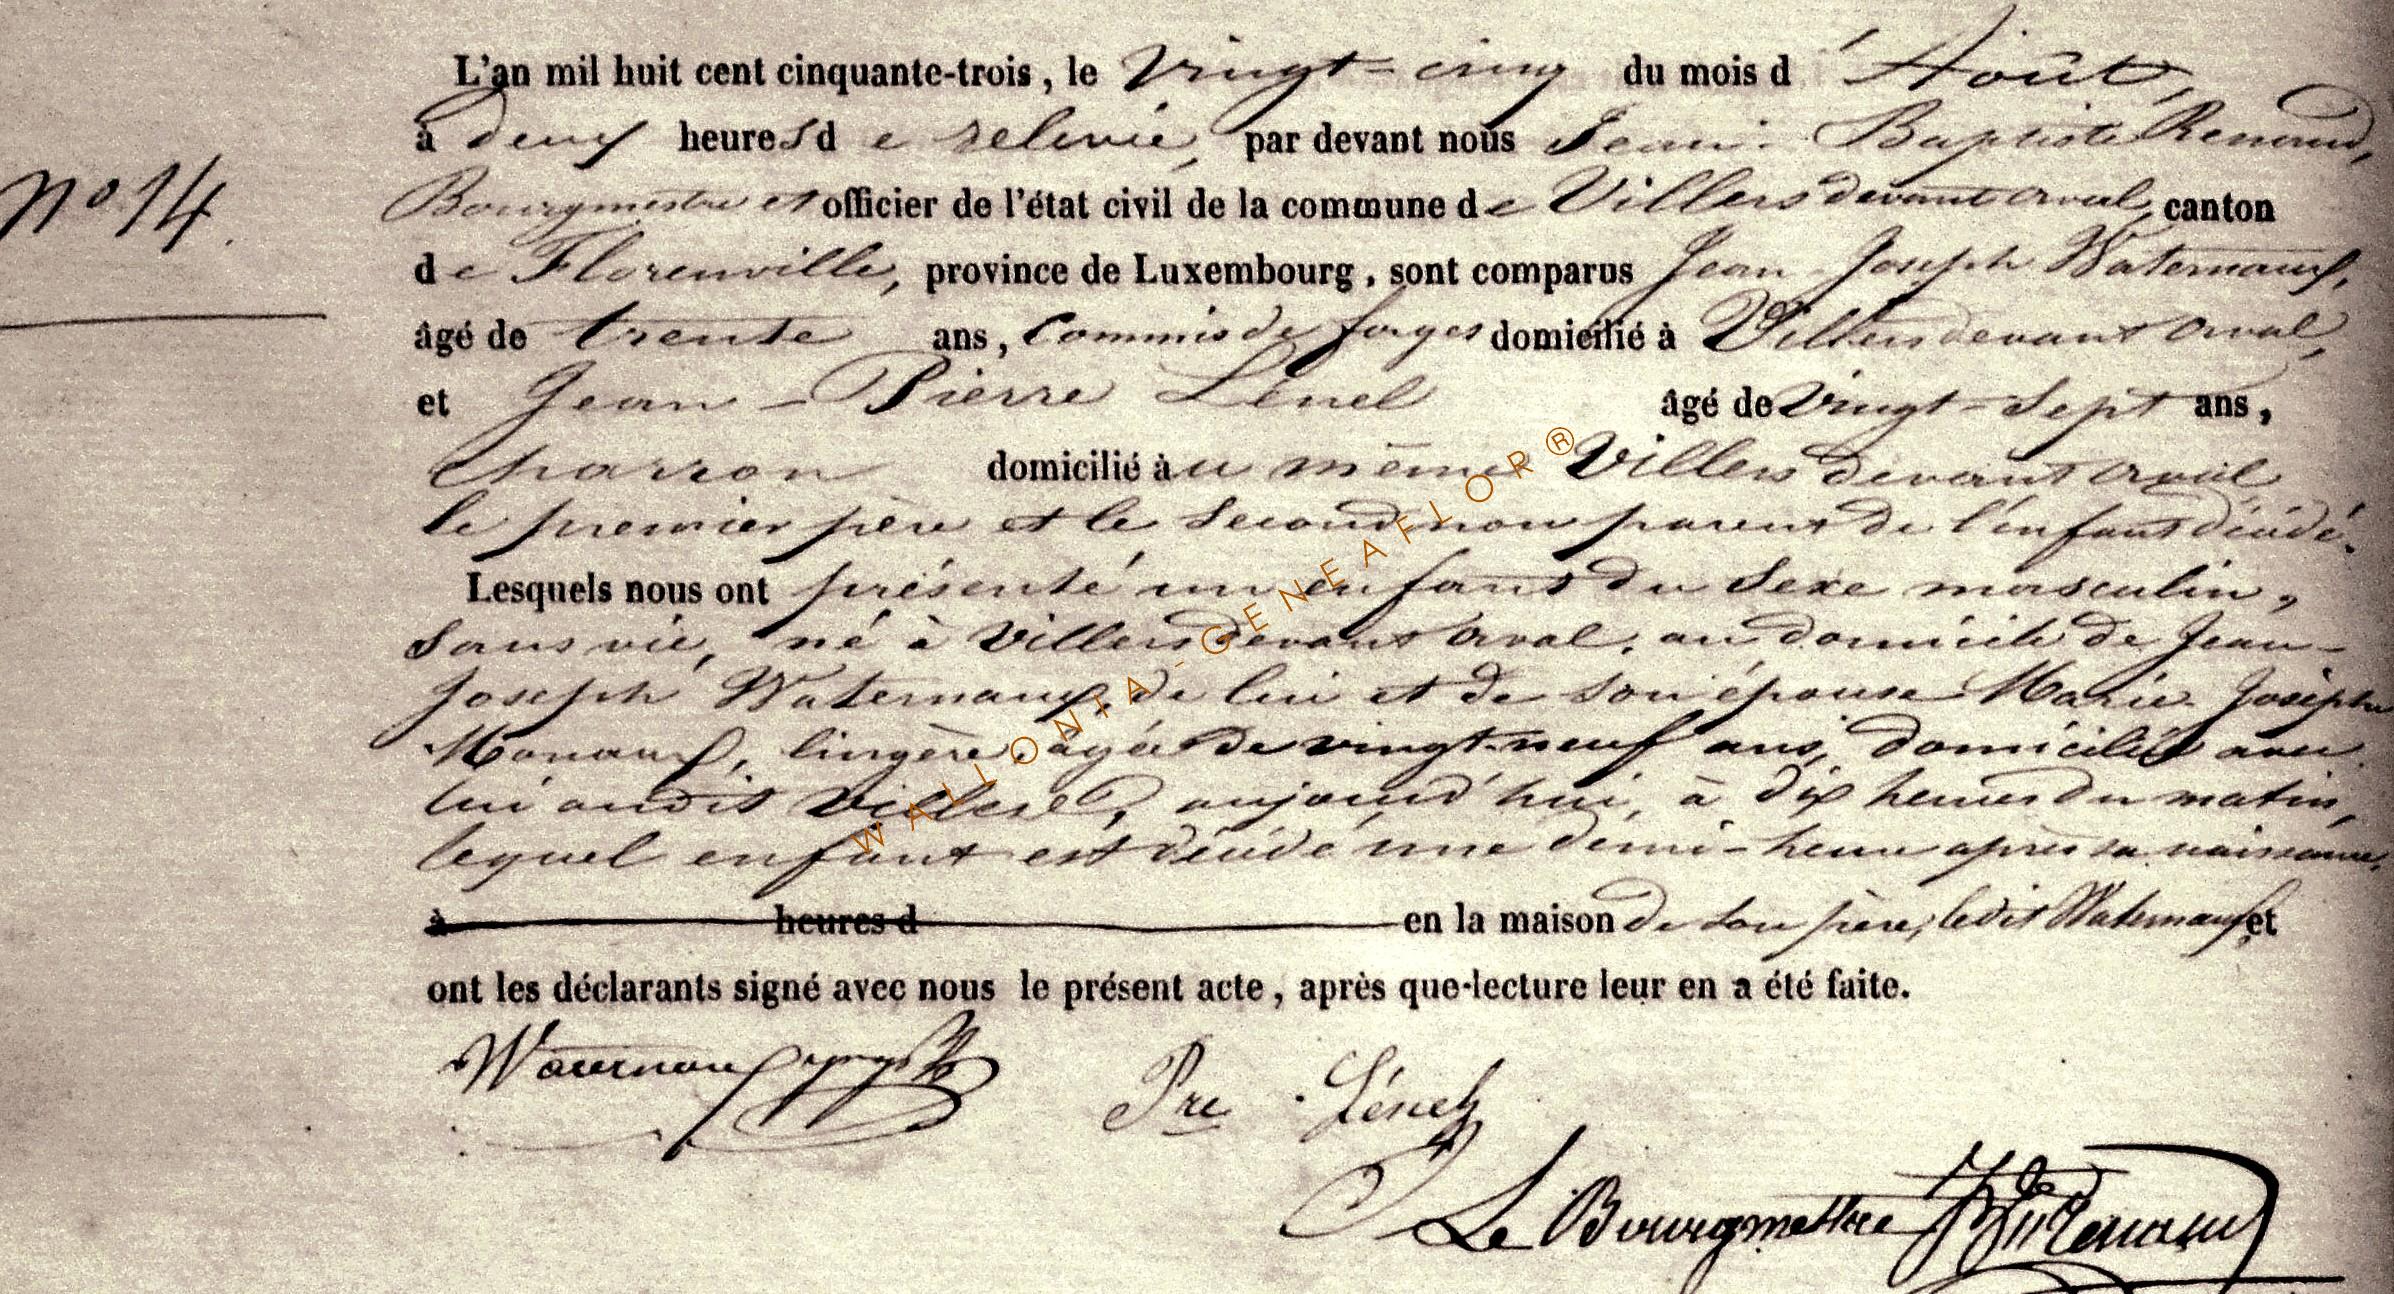 L'an mil huit cent cinquante-trois, le vingt-cinq du mois d'Août,
à deux heures de relevée, par devant nous Jean-Baptiste Renaud,
n° 14.
Bourgmestre et officier de l'état civil de la commune de Villers devant orval, canton
de Florenville, province de Luxembourg, sont comparus Jean Joseph Waternaux,
âgé de trente ans, Commis de forges domicilié à Villers devant orval,
et Jean-Pierre Lénel âgé de vingt-sept ans,
charron domicilié au même Villers devant orval
le premier père et le second non parent de l'enfant décédé.
Lesquels nous ont présenté un enfant du sexe masculin,
sans vie, né à Villers devant orval, au domicile de Jean-
Joseph Waternaux, de lui et de son épouse Marie Josèphe
Monaux, lingère, âgée de vingt-neuf ans, domiciliée avec
lui audit Villers, aujourd'hui, à dix heures du matin,
lequel enfant est décédé une demi-heure après sa naissance,
à heures d en la maison de son père, ledit Waternaux, et
ont les déclarants signé avec nous le présent acte, après que lecture leur en a été faite.
Pre Lénel
Le Bourgmestre Renaud
WALLONIA-GENEAFLOR®